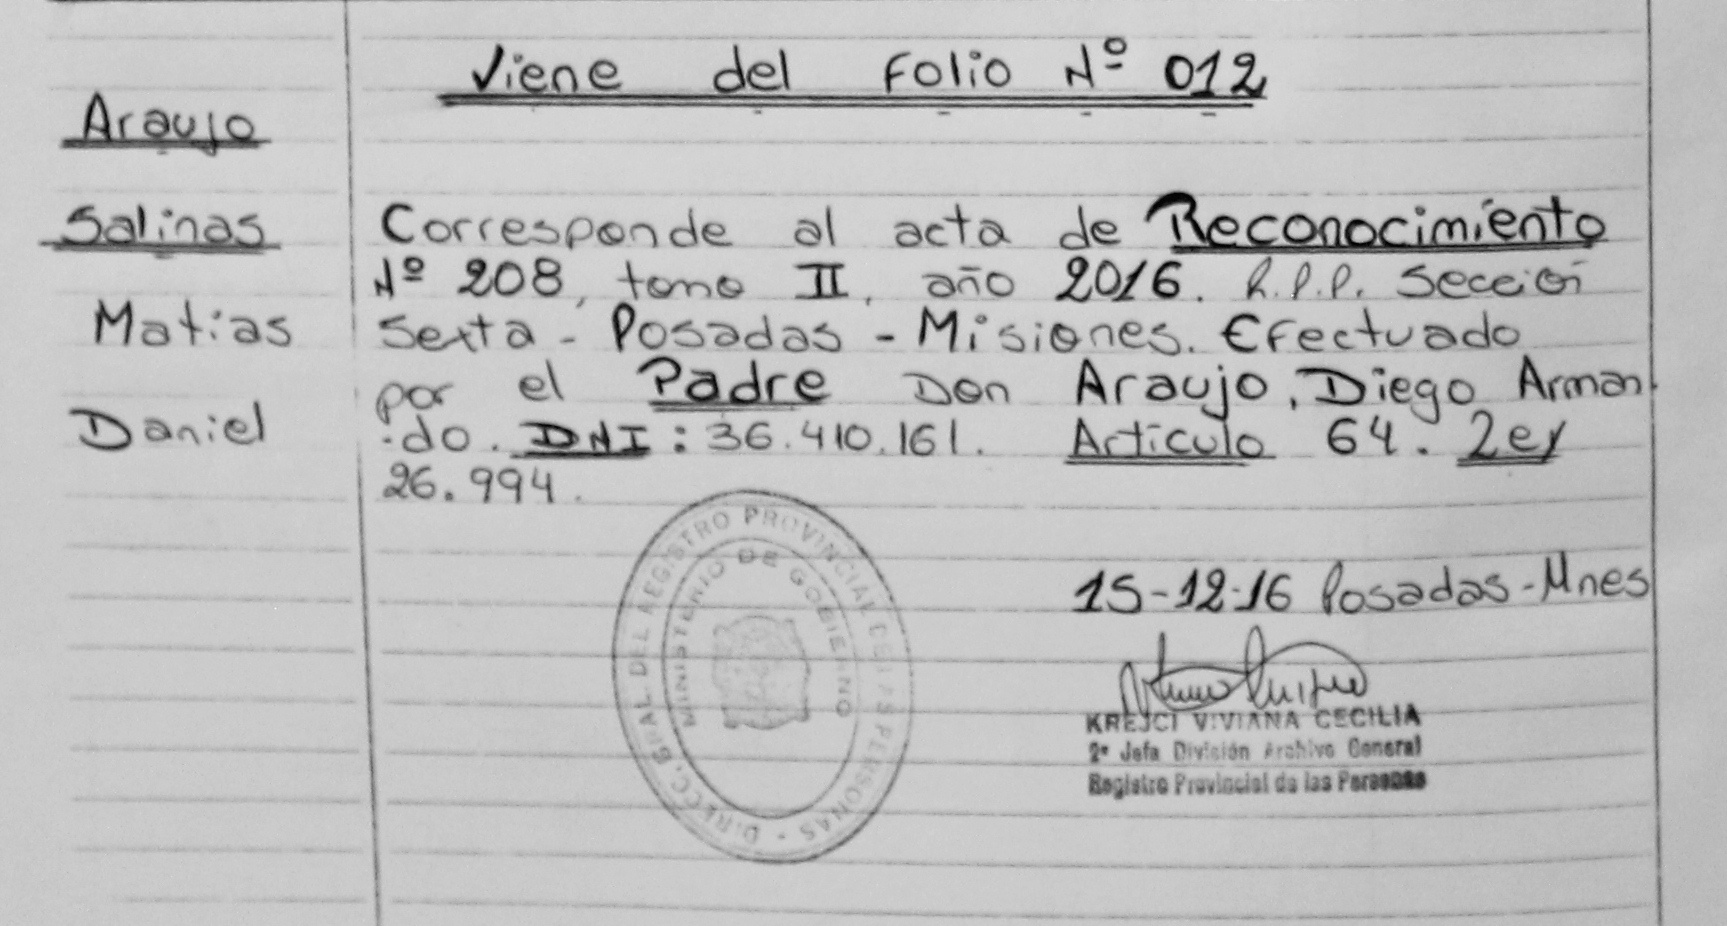 Viene del Folio Nº 012
Araujo
Salinas
Matias
Daniel
Corresponde al acta de Reconocimiento
Nº 208, tomo II, año 2016. R.P.P. Sección
Sexta - Posadas - Misiones. Efectuado
por el Padre Don Araujo, Diego Arman
-do. DNI: 36.410.161. Artículo 64. Ley
26.994.
DIRECC. GRAL. DEL REGISTRO PROVINCIAL DE LAS PERSONAS -
MINISTERIO DE GOBIERNO
15-12-16 Posadas-Mnes
KREJCI VIVIANA CECILIA
2ª Jefa División Archivo General
Registro Provincial de las Personas